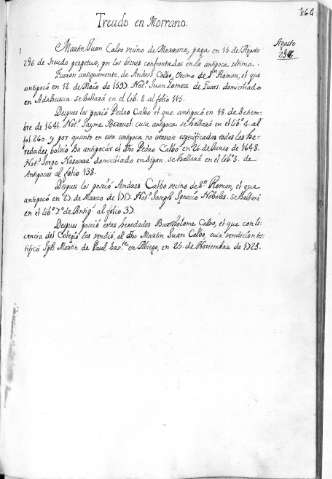 164
Treudo en Morrano.
Agosto
Martin Juan Calvo vecino de Morrano, paga en 15 de Agosto
de treudo perpetuo, por los bienes confrontados en la antigua, última.
Fueron antiguamente de Andres Calvo, vecino de Sn. Roman, el que
antiguó en 12 de Maio de 1597 Notº. Juan domiciliado
en Adahuesca se hallará en el lib. 2. al folio 115.
Despues los poseió Pedro Calvo, el que antiguó en 18 de Setiem-
bre de 1641. Notº. Jayme cuia antigua se hallará en el libº. 2. al
fol. 260. y por quanto en esta antigua no venian especificadas todas las He-
redades, bolvió á antiguar el dho Pedro Calvo en 26 de Junio de 1648.
Notº. Jorge domiciliado en se hallará en el libº. 3. de
Antiguas al folio 138.
Despues los poseió Calvo vecino de Sn. Roman, el que
antiguó en 27 de Marzo de 1717 Notº. Ignacio Nobilla, se hallará
en el libº. 7º. de Antigs. al folio 37
Despues poseió estas heredades Bartholome Calvo, el que con li-
cencia del Colegio las vendió al dho Martin Juan Calvo, cuia vendicion te-
stificó Martin de en Abiego, en 26 de Noviembre de 1723.